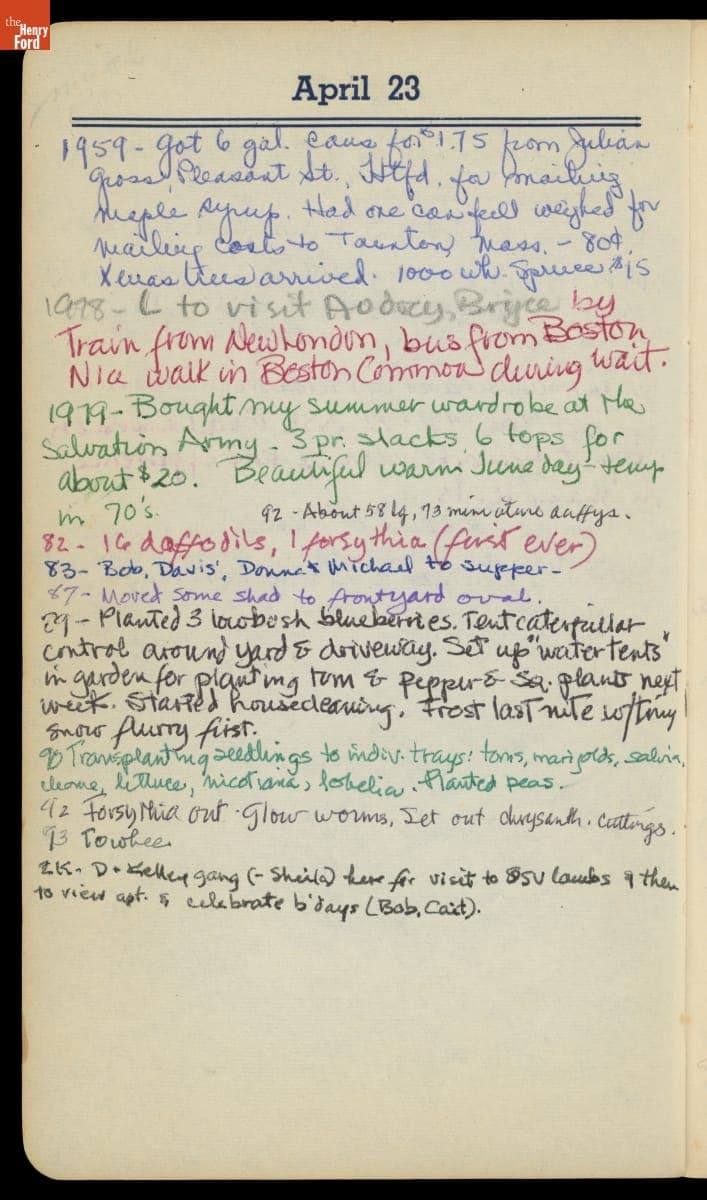 the
Henry
Ford
April 23
1959 - Got 6 gal. cans for $1.75 from Julian
Gross, Pleasant St., Htfd. for mailing
maple syrup. Had one can full weighed for
mailing costs to Taunton, Mass. - 80¢.
Xmas trees arrived. 1000 wh. Spruce $15
1978 - L to visit Audrey, Bryce by
Train from New London, bus from Boston
Nice walk in Boston Common during wait.
1979 - Bought my summer wardrobe at the
Salvation Army - 3 pr. slacks, 6 tops for
about $20. Beautiful warm June day - temp
in 70's.
92 - About 58 lg, 73 miniature daffys.
82 - 16 daffodils, 1 forsythia (first ever)
83 - Bob, Davis', Donna & Michael to supper -
87 - Moved some shad to frontyard oval.
89 - Planted 3 lowbush blueberries. Tent caterpillar
control around yard & driveway. Set up "water tents"
in garden for planting tom & pepper & Sq. plants next
week. Started housecleaning. Frost last nite w/tiny
snow flurry first.
90 Transplanting seedlings to indiv. trays: toms, marigolds, salvia,
cleome, lettuce, nicotiana, lobelia. Planted peas.
92 Forsythia out. Glow worms, Set out chrysanth. cuttings.
93 Towhee
2K - D + Kelley gang (- Sheila) here for visit to OSV lambs & then
to view apt. & celebrate b'days (Bob, Cait).